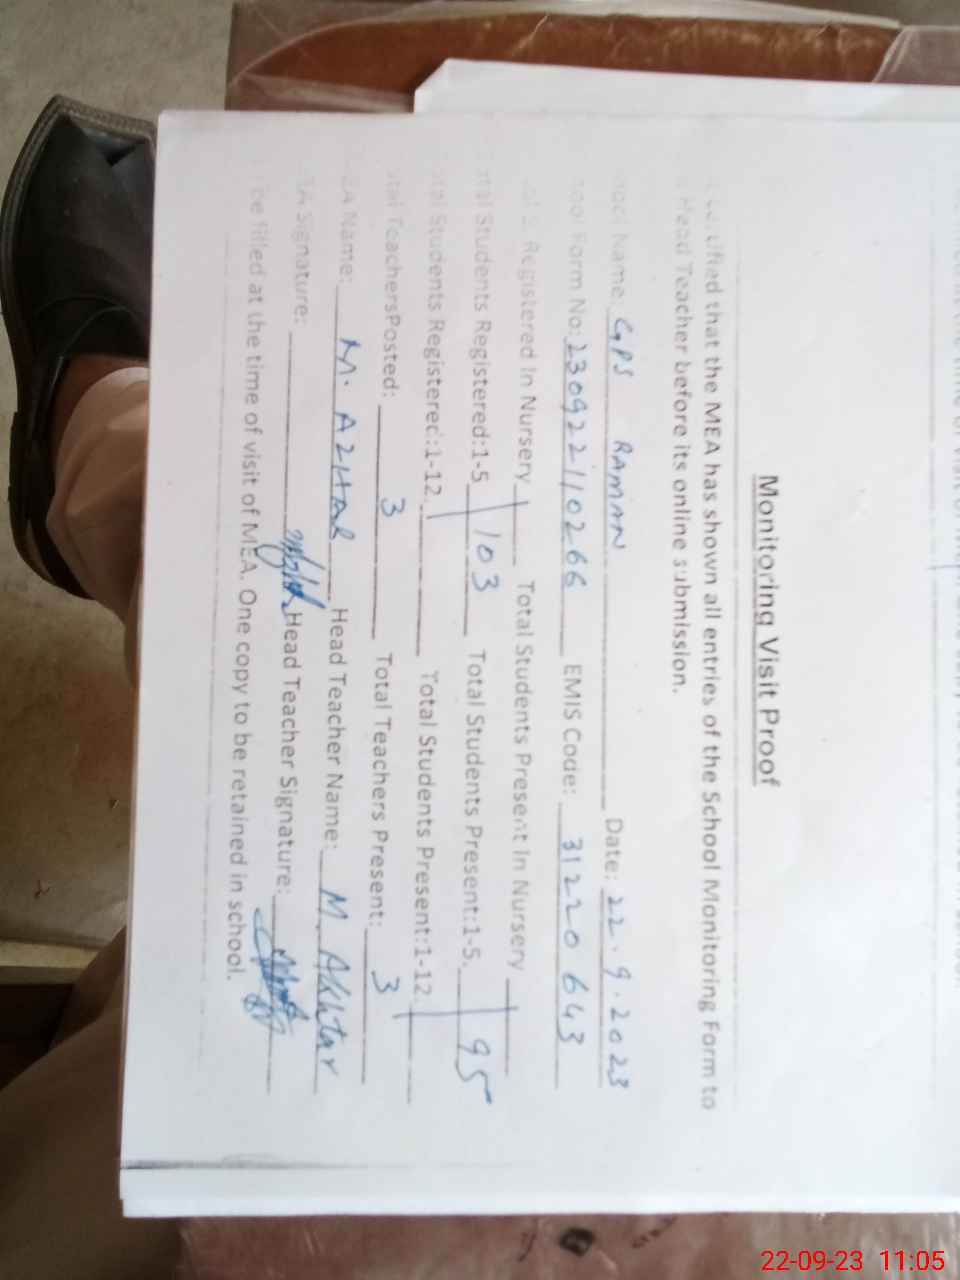 Monitoring Visit Proof
certified that the MEA has shown all entries of the School Monitoring Form to
Head Teacher before its online submission.
Name: GPS RAMAN Date: 22.9.2023
Form No: 230922110266 EMIS Code: 31220643
Registered In Nursery Total Students Present in Nursery
Students Registered:1-5 103 Total Students Present:1-5. 95
Students Registered:1-12. Total Students Present:1-12.
TeachersPosted: 3 Total Teachers Present: 3
Name: M. AZHAR Head Teacher Name: M. Akhtar
Signature: Head Teacher Signature:
be filled at the time of visit of MEA. One copy to be retained in school.
22-09-23 11:05